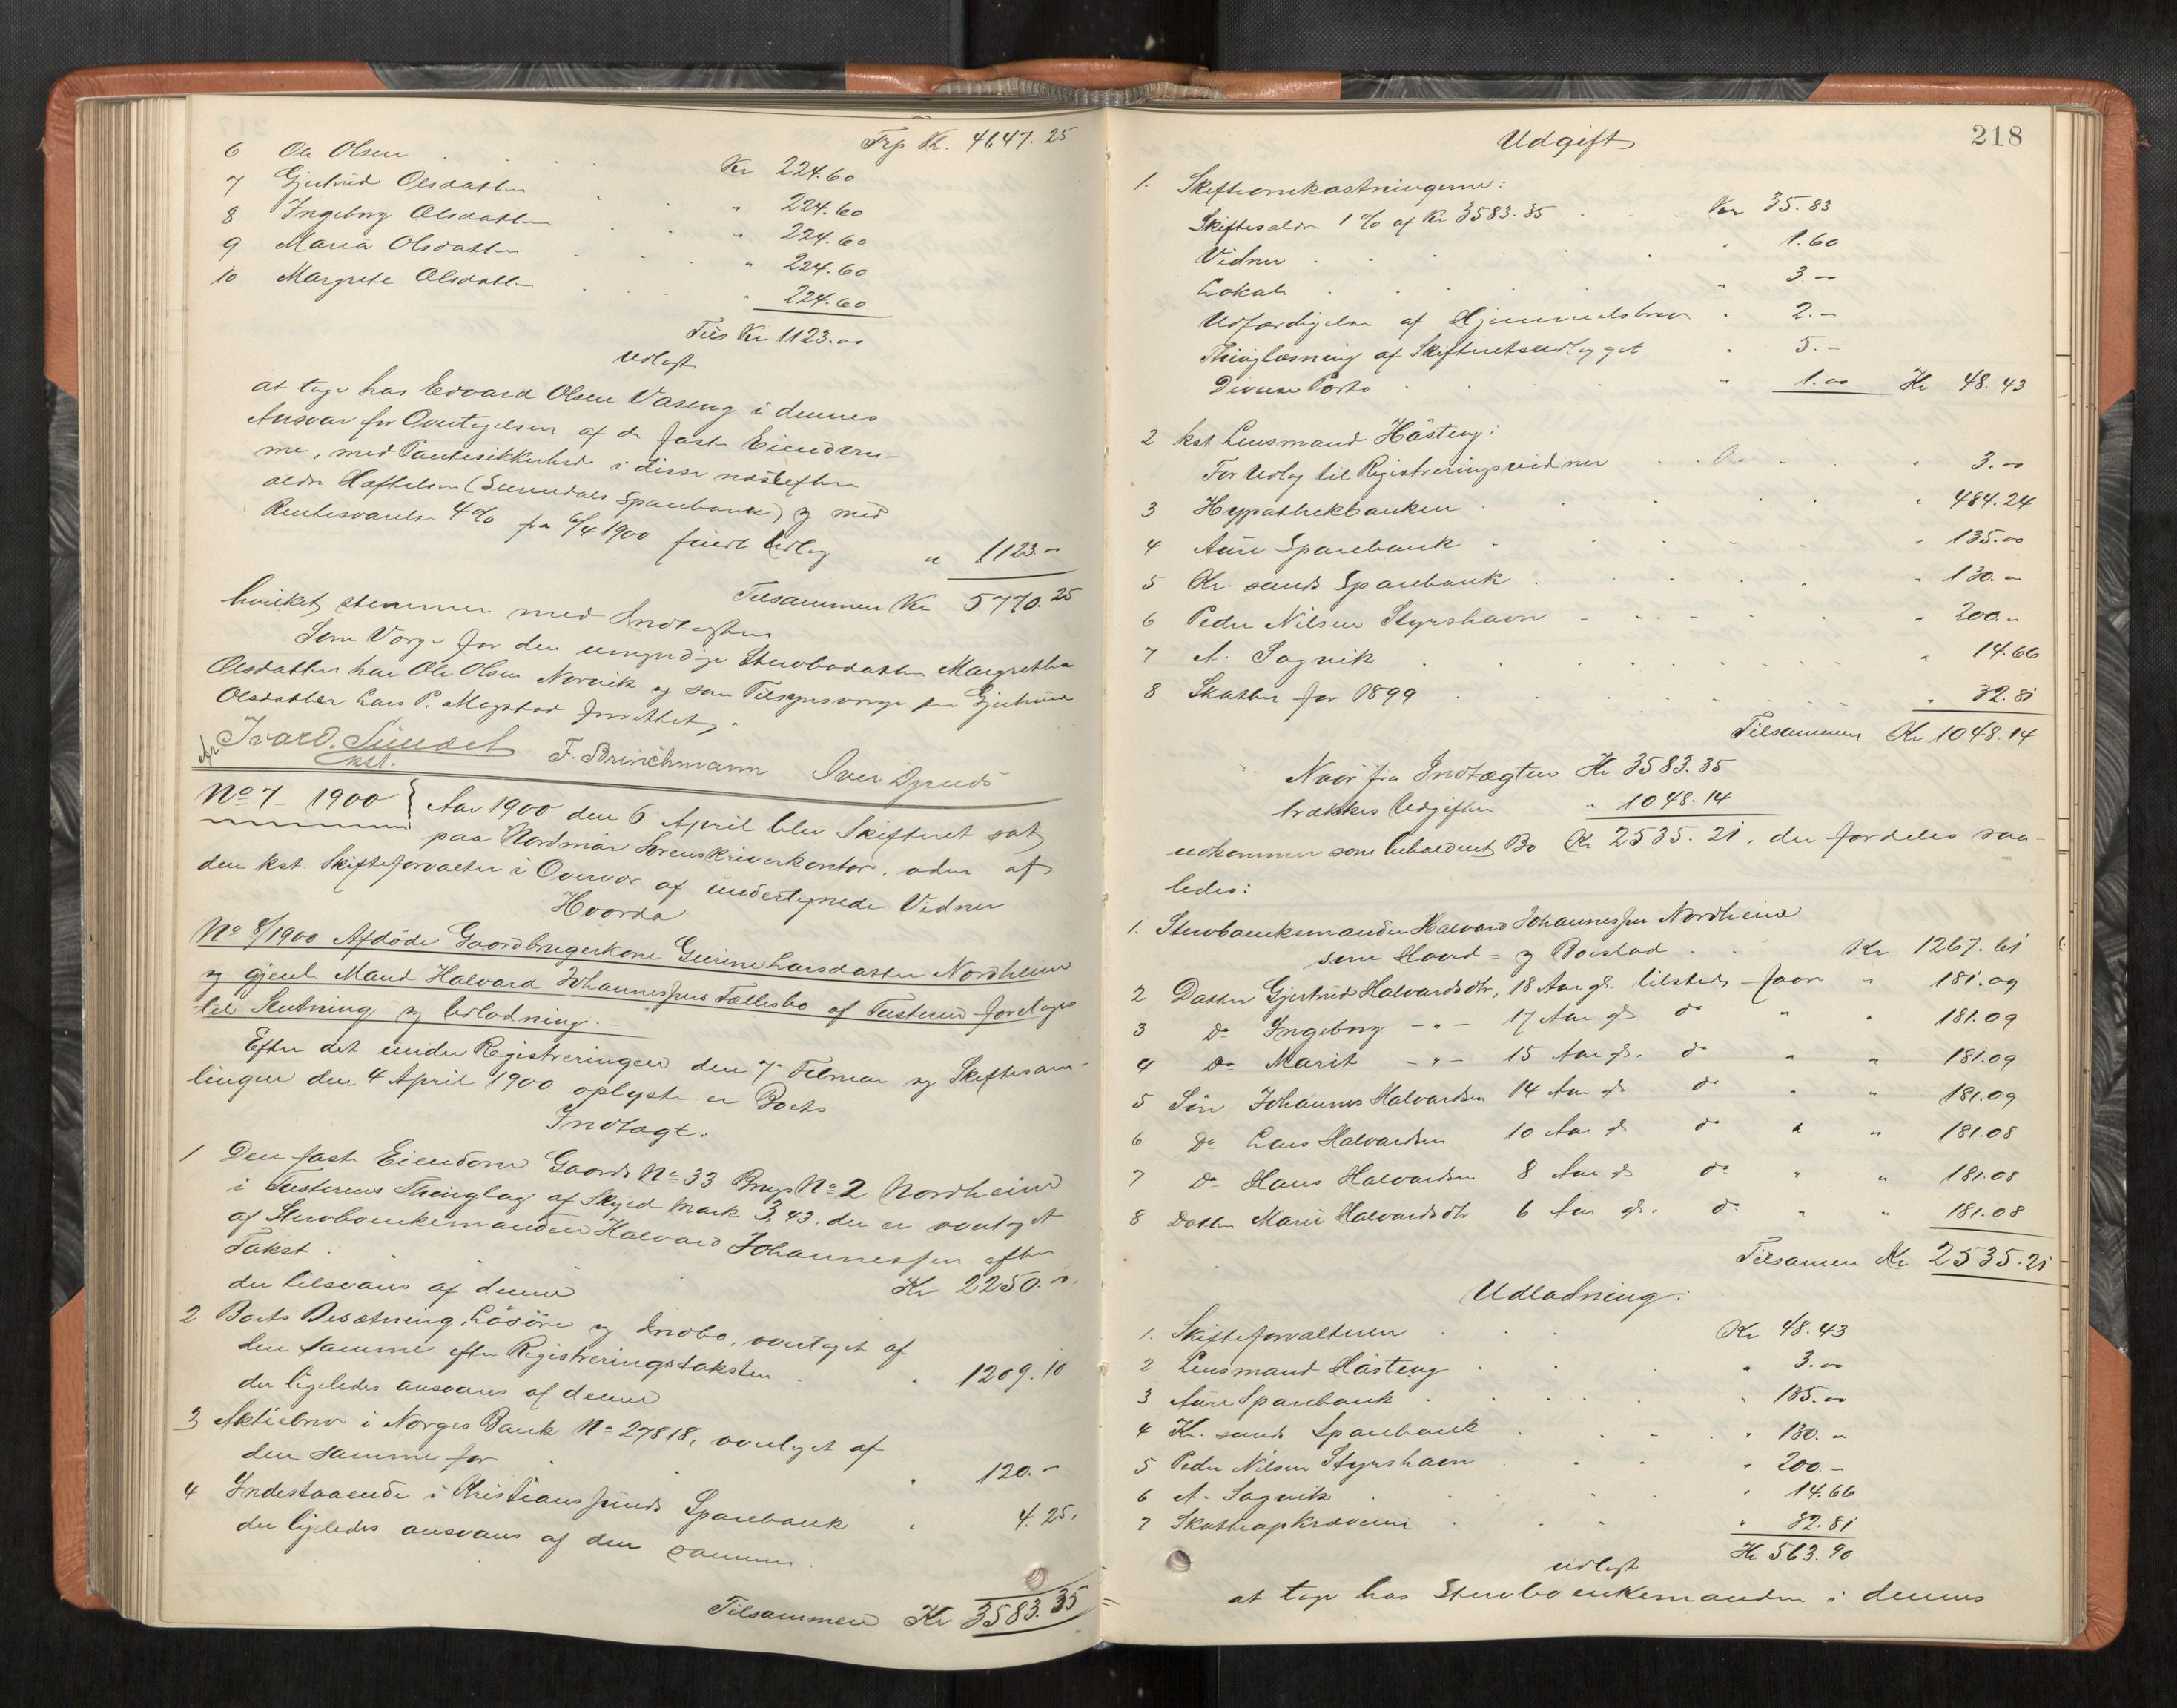 Trp Kr. 4647.25
6 Ole Olsen . . . Kr 224.60
7 Gjertrud Olsdatter . . " 224.60
8 Ingeborg Olsdatter . . " 224.60
9 Maria Olsdatter . . . " 224.60
10 Margrete Olsdatter . . . " 224.60
Tils Kr 1123.00
Udlagt
at tage hos Edvard Olsen Vaseng i dennes
Ansvar for Overtagelsen af de faste Eiendom-
me, med Pantesikkerhed i disse næstefter
ældre Heftelser (Surendals Sparebank) og med
Rentesvarelse 4% fra 6/4 1900 fuldt Udlæg " 1123.00
Tilsammen Kr 5770.25
hvilket stemmer med Indtægten
Som Værge for den umyndige Stervbodatter Margrethe
Olsdatter har Ole Olsen Norvik og som Tilsynsværge for Gjertrud
Olsdatter Lars P. Megstad
Ivar O. Sundet
kst.
F. Brinchmann Iver Djruds
No 7 1900 } Aar 1900 den 6 April blev Skifteret sat
paa Nordmør Sorenskriverkontor, aden af
den kst. Skifteforvalter i Overvær af undertegnede Vidner
Hvorda
No 8/1900 Afdøde Gaardbrugerkone Gurine Larsdatter Nordheim
og gjenl. Mand Halvard Johannessens Fællesbo af Tusteren foretages
til Slutning og Udlodning.
Efter det under Registreringen den 7 Februar og Skiftesam-
lingen den 4 April 1900 oplyste er Boets
Indtægt:
1 Den faste Eiendom Gaards No 33 Brugs No 2 Nordheim
i Tusterens Thinglag af Skyld Mark 3,43, der er overtaget
af Stervboenkemanden Halvard Johannessen efter
Takst .
der tilsvares af denne Kr 2250.00
2 Boets Besætning, Løsøre og Indbo, overtaget af
den samme efter Registreringstaksten . . 1209.10
der ligeledes ansvares af denne
3 Aktiebrev i Norges Bank No 27818, overtaget af
den samme for . . . 120.-
4 Indestaaende i Kristianssunds Sparebank . 4.25.
der ligeledes ansvares af den samme.
Tilsammen Kr 3583.35
218
Udgift
1. Skifteomkostningerne:
Skiftesalær 1 % af Kr 3583.35 . . . Kr 35.83
Vidner . . . . . . 1.60
Lokale . . . . . . 3.00
Udfærdigelse af Hjemmelsbrev . 2.-
Thinglæsning af Skifteretsudlægget . 5.-
Diverse Porto . . . . " 1.00 Kr 48.43
2 kst. Lensmand Hästeng:
For Udlæg til Registreringsvidner . . . 3.00
3 Hypothekbanken . . . . . 484.24
4 Aure Sparebank . . . . . 135.00
5 Kr. sunds Sparebank . . . . . 130.00
6 Peder Nilsen Styrshavn . . . . . 200.00
7 A. Sagvik . . . . . 14.66
8 Skatter for 1899 . . . . . 32.81
Tilsammen Kr 1048.14
Naar fra Indtægten Kr 3583.35
trækkes Udgiften " 1048.14
udkommer som beholdent Bo Kr 2535.21, der fordeles saa-
ledes:
1. Stervboenkemanden Halvard Johannessen Nordheim
som Hoved- og Boeslod . . Kr 1267.61
2 Datter Gjertrud Halvardsdtr, 18 Aar gl. tilsteds faar " 181.09
3 Do Ingeborg - " - 17 Aar gl do " " 181.09
4 Do Marit - " - 15 Aar gl. do " " 181.09
5 Søn Johannes Halvardsen 14 Aar gl do " " 181.09
6 Do Lars Halvardsen 10 Aar gl do " " 181.08
7 Do Hans Halvardsen 8 Aar gl do " " 181.08
8 Datter Marie Halvardsdtr 6 Aar gl. do " " 181.08
Tilsamen Kr 2535.21
Udlodning:
1. Skifteforvalteren . . . Kr 48.43
2 Lensmand Hästeng . . " 3.00
3 Aure Sparebank . . . . 135.00
4 Kr. sunds Sparebank . . . . 130.00
5 Peder Nilsen Styrshavn . . " 200.-
6 A. Sagvik . . . . 14.66
7 Skatteopkræveren . . . " 32.81
Kr 563.90
udlagt
at tage hos Stervboenkemanden i dennes